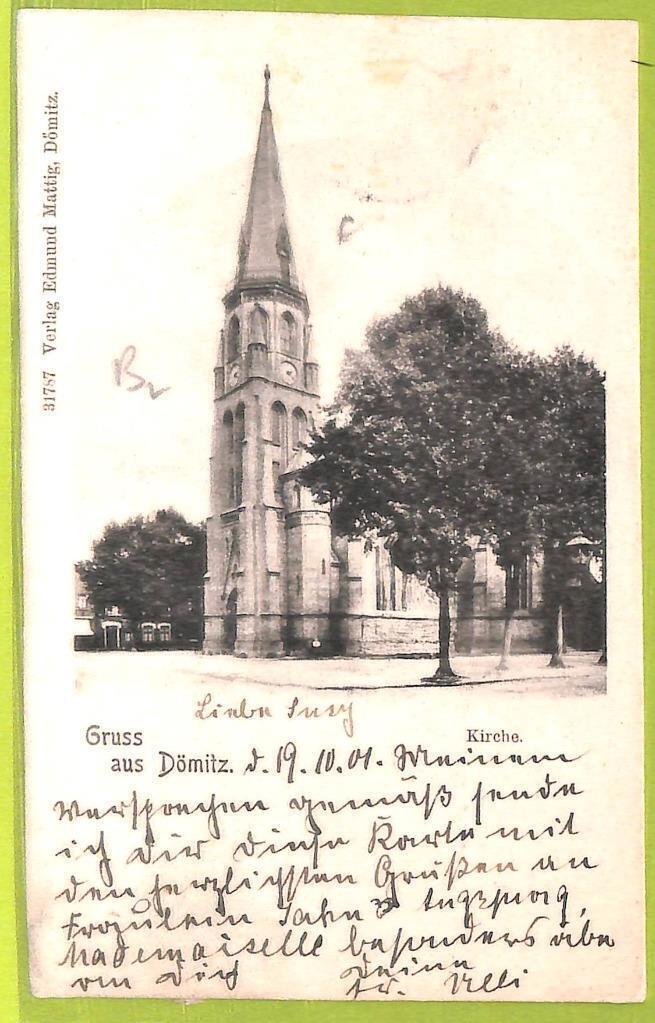 31787 Verlag Edmund Mattig, Dömitz.
Br
Liebe Susy
Gruss
Kirche.
aus Dömitz. d. 19.10.01. Meinem
Versprechen gemäß sende
ich dir diese Karte mit
den herzlichsten Grüßen an
Fräulein
Mademaiselle besonders abe
an dich deine
Fr. Elli